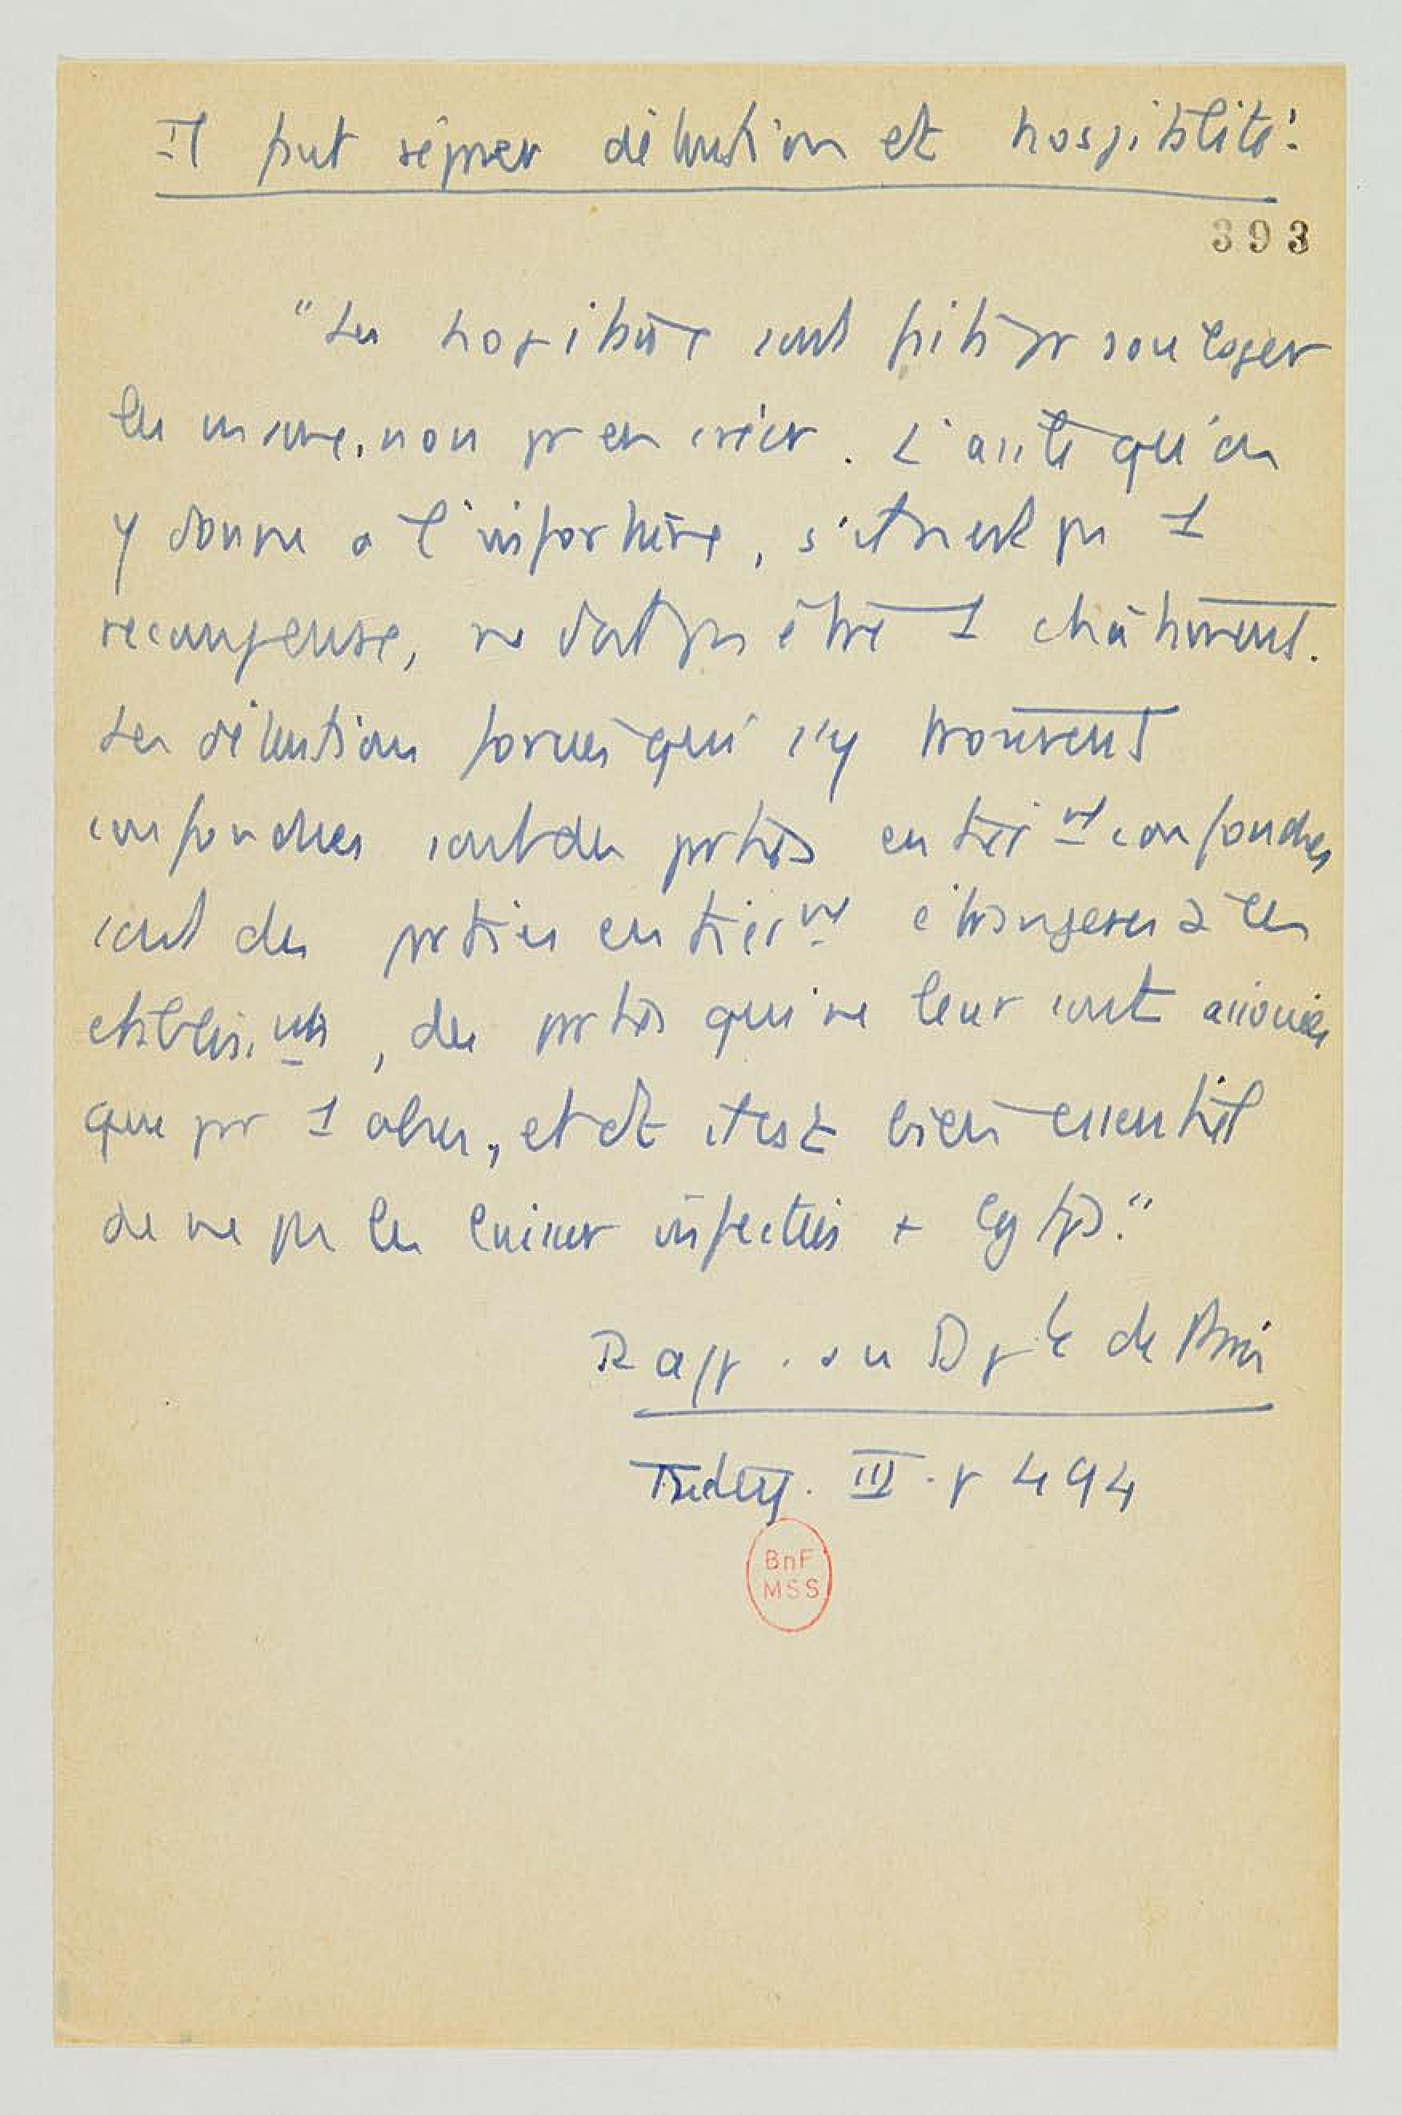 Il faut séparer détention et hospitalité:
393
"Les hospitaux sont faits pr soulager
les misères, non pr en créer. L'asile qu'on
y donne à l'infortune, s'il n'est pas 1
récompense, ne doit pas être 1 châtiment.
Les détentions forcées qui s'y trouvent
confondues sont des parties entièrnt confondues
sont des parties entièrnt étrangères à ces
établissnts, des parties qui ne leur sont associées
que par 1 abus, et dt il est bien essentiel
de ne pas les laisser infectées + lgtps."
Rapp. au Dpt de Paris
Tuetey. III. p 494
BnF
MSS